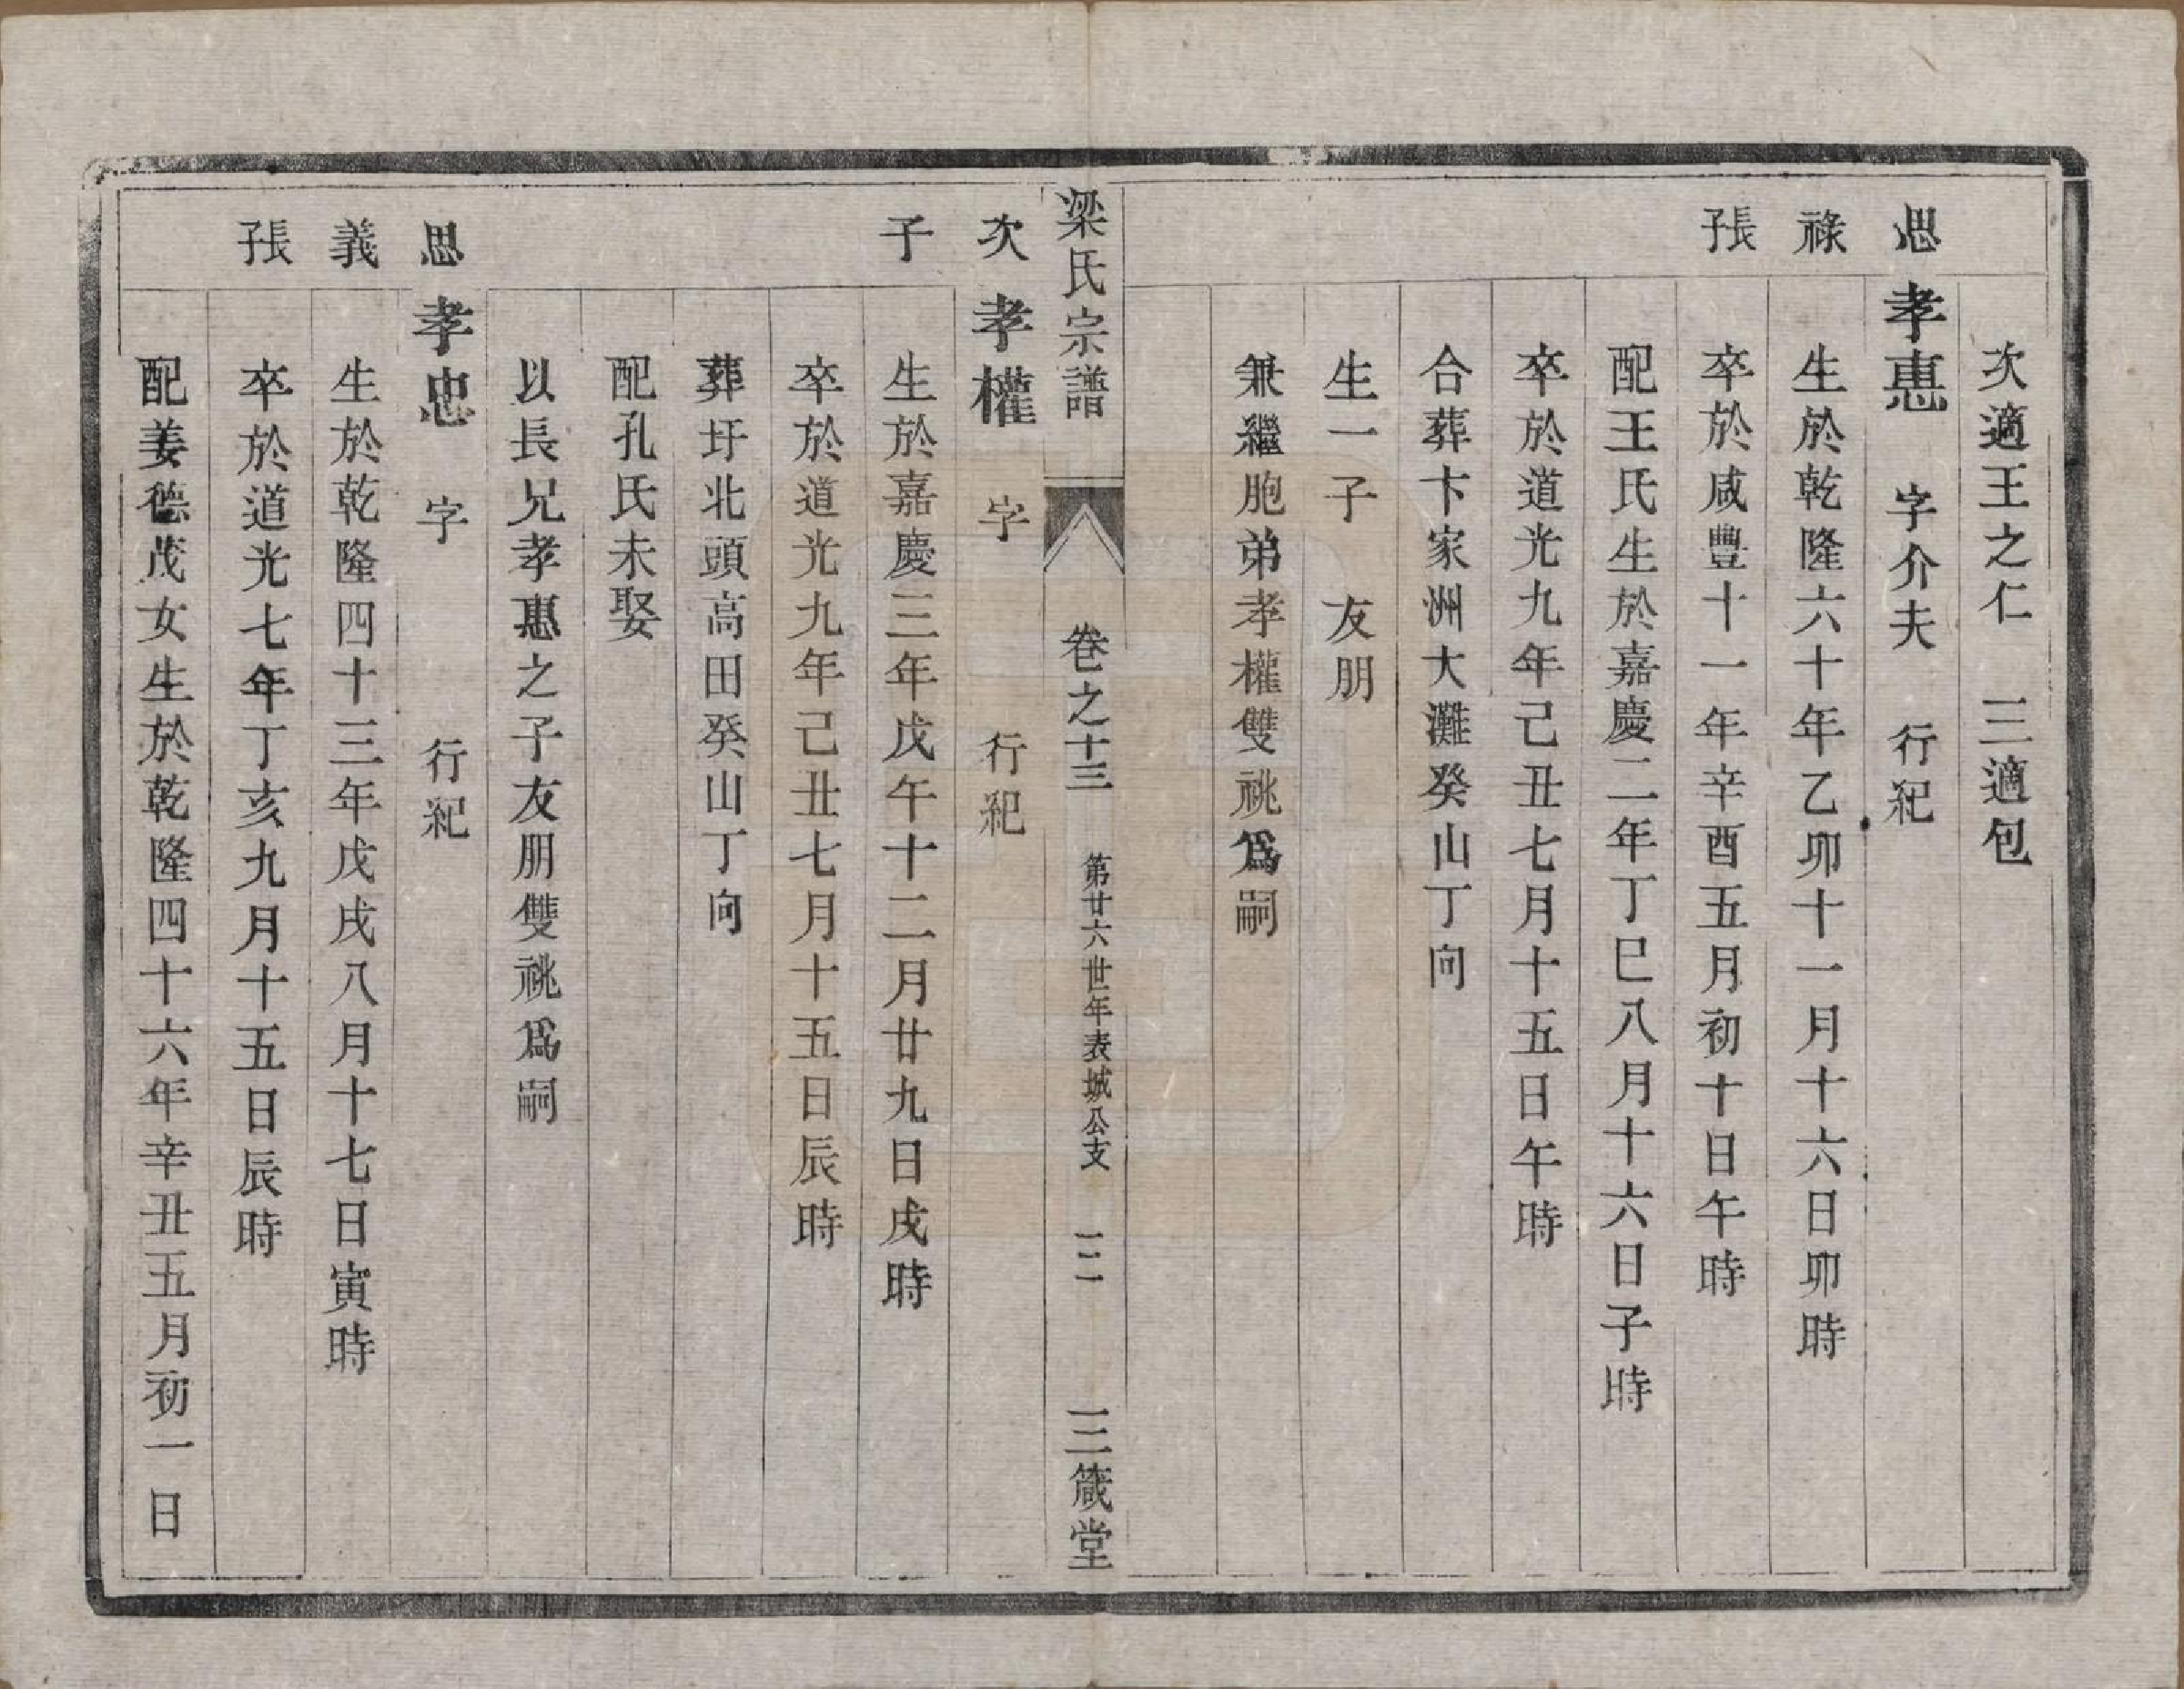 次適王之仁　三適包
思　孝惠　字介夫　行紀
祿　生於乾隆六十年乙卯十一月十六日卯時
長子　卒於咸豐十一年辛酉五月初十日午時
配王氏生於嘉慶二年丁巳八月十六日子時
卒於道光九年己丑七月十五日午時
合葬卞家洲大灘癸山丁向
生一子　友朋
兼繼胞弟孝權雙祧爲嗣
梁氏宗譜　卷之十三　第廿六世年表城公支　三　三箴堂
次　孝權　字　行紀
子　生於嘉慶三年戊午十二月廿九日戌時
卒於道光九年己丑七月十五日辰時
葬圩北頭高田癸山丁向
配孔氏未娶
以長兄孝惠之子友朋雙祧爲嗣
思　孝忠　字　行紀
義　生於乾隆四十三年戊戌八月十七日寅時
長子　卒於道光七年丁亥九月十五日辰時
配姜德茂女生於乾隆四十六年辛丑五月初一日